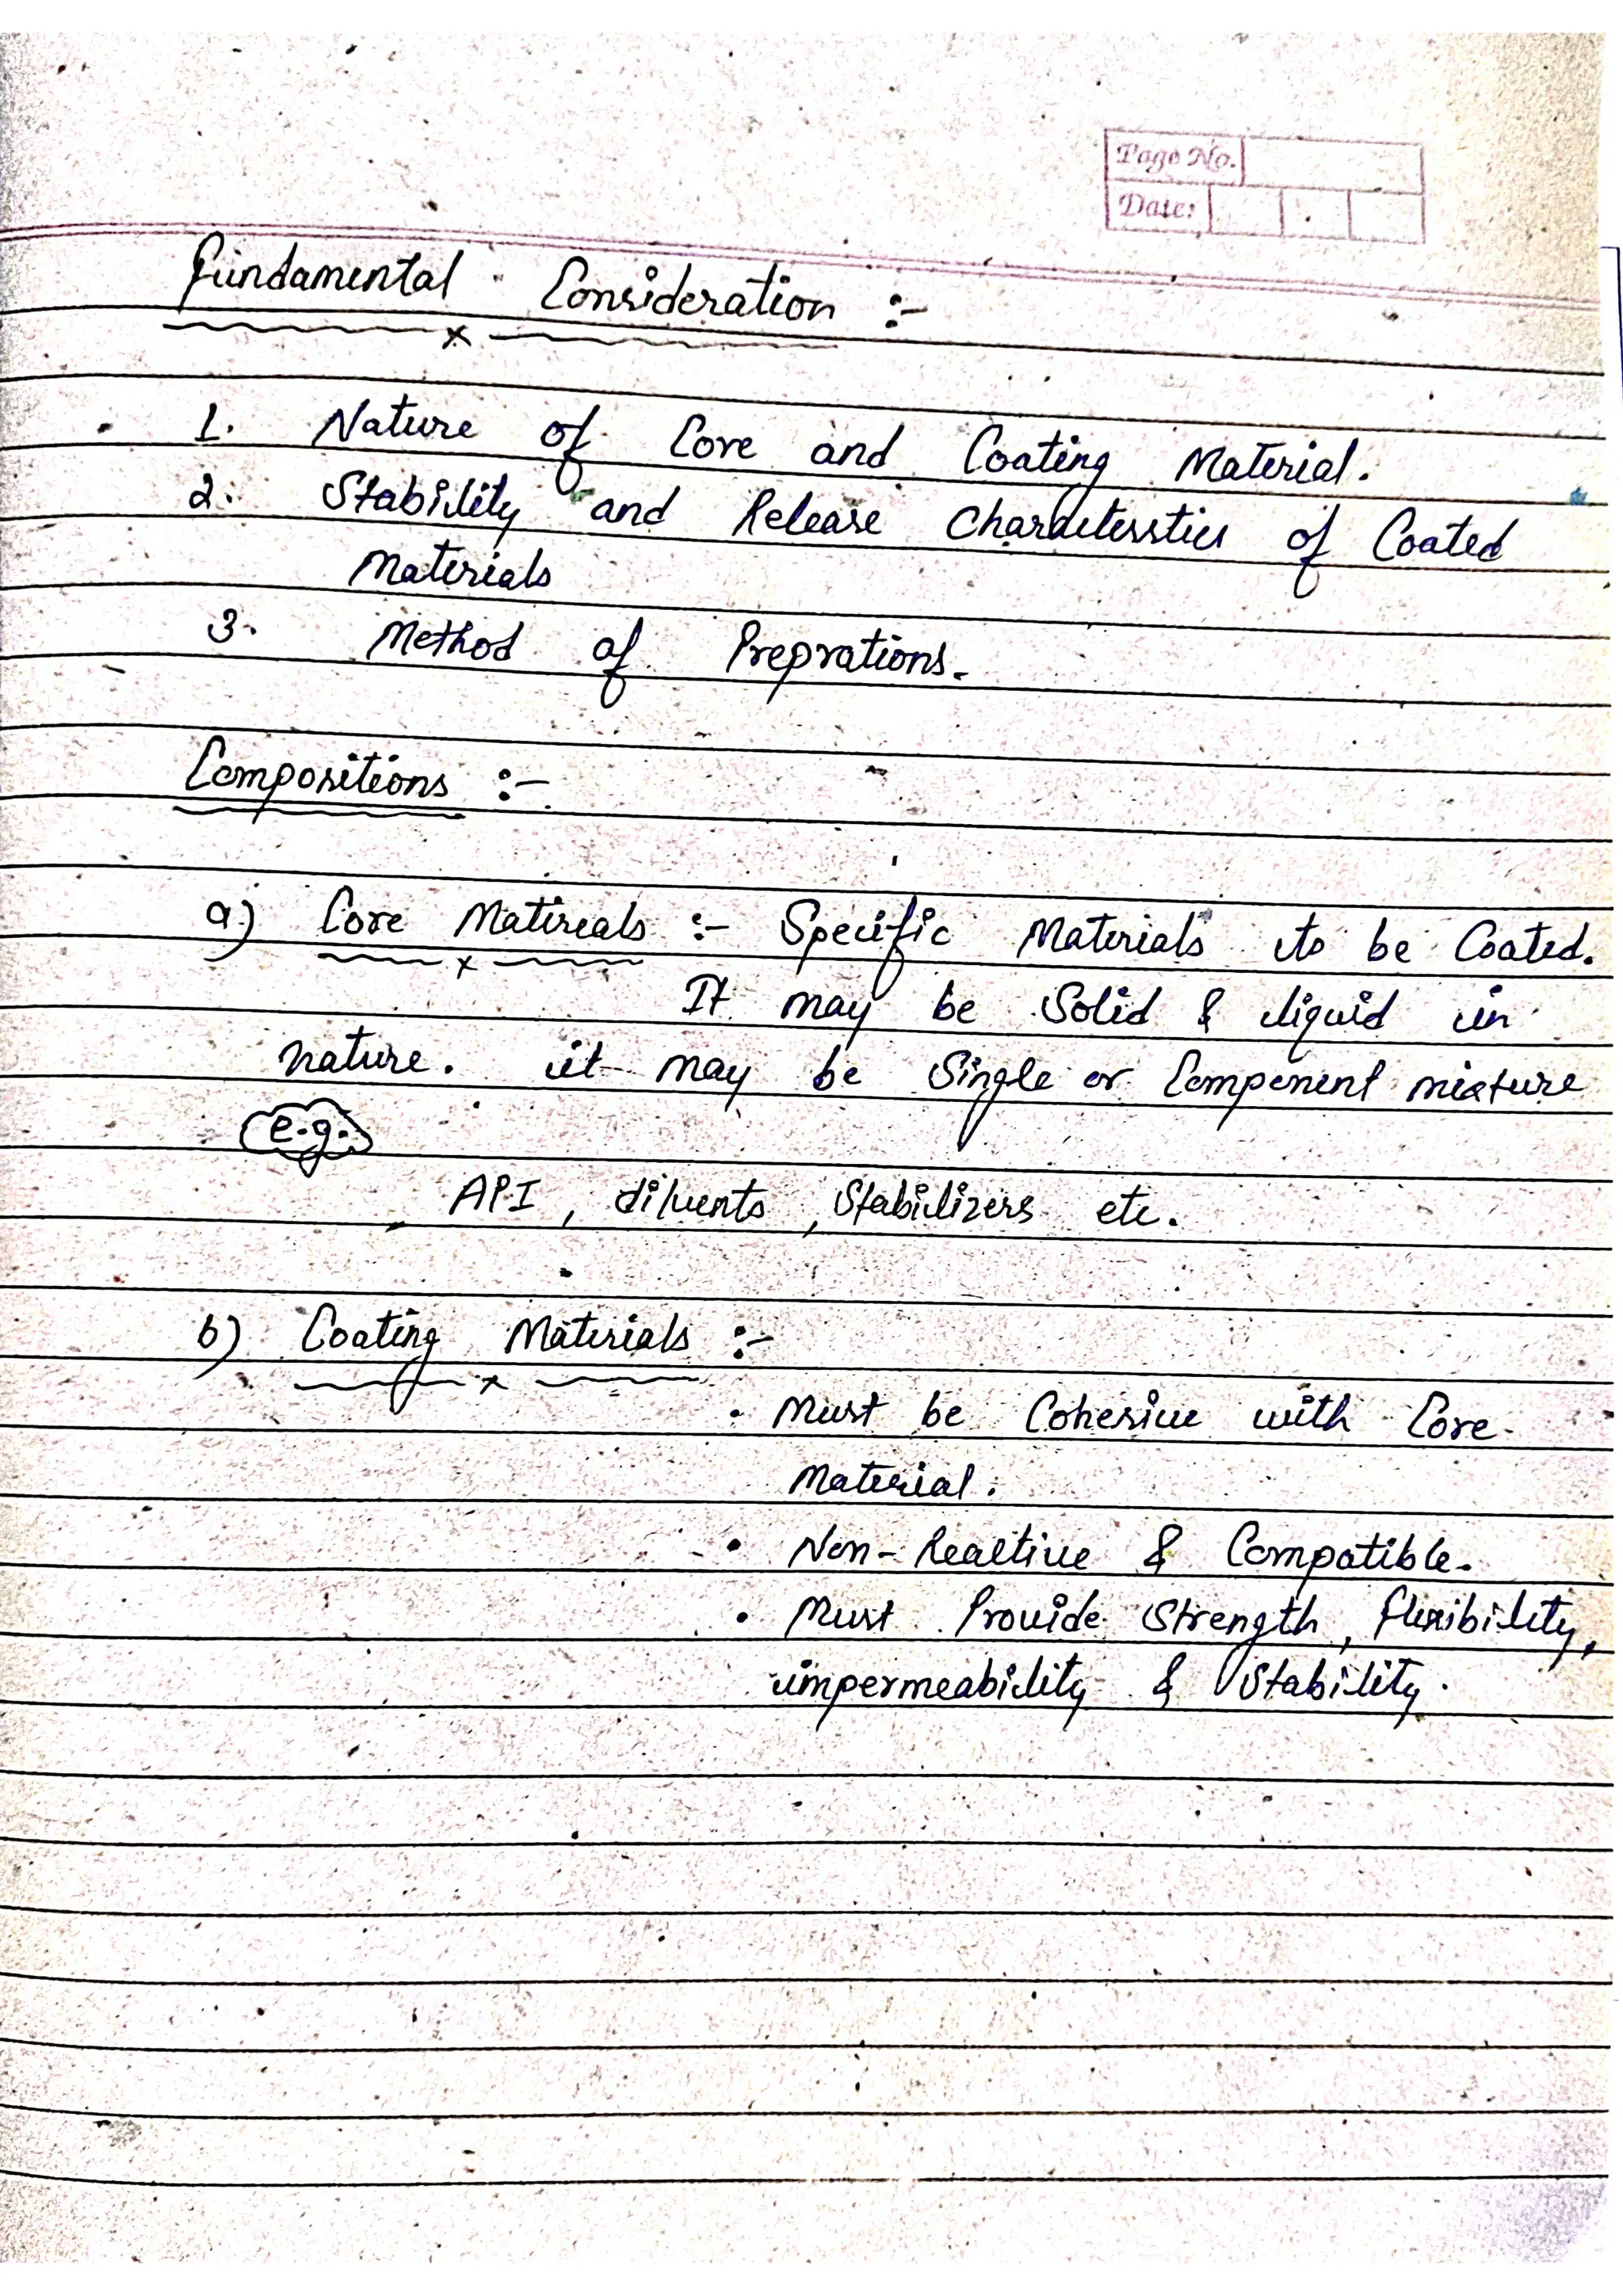 Page No.
Date:
Fundamental Consideration :-
1. Nature of Core and Coating Material.
2. Stability and Release Charactersstics of Coated
Materials
3. Method of Preprations.
Compositions :-
a) Core Matireals :- Specific Materials to be Coated.
It may be Solid & liquid in
nature. it may be Single or Component mixture
e.g.
API, diluents, Stabilizers etc.
b) Coating Materials :-
• Must be Cohesive with Core
Material.
• Non-Reactive & Compatible.
• Must Provide Strength, flexibility,
impermeability & Stability.